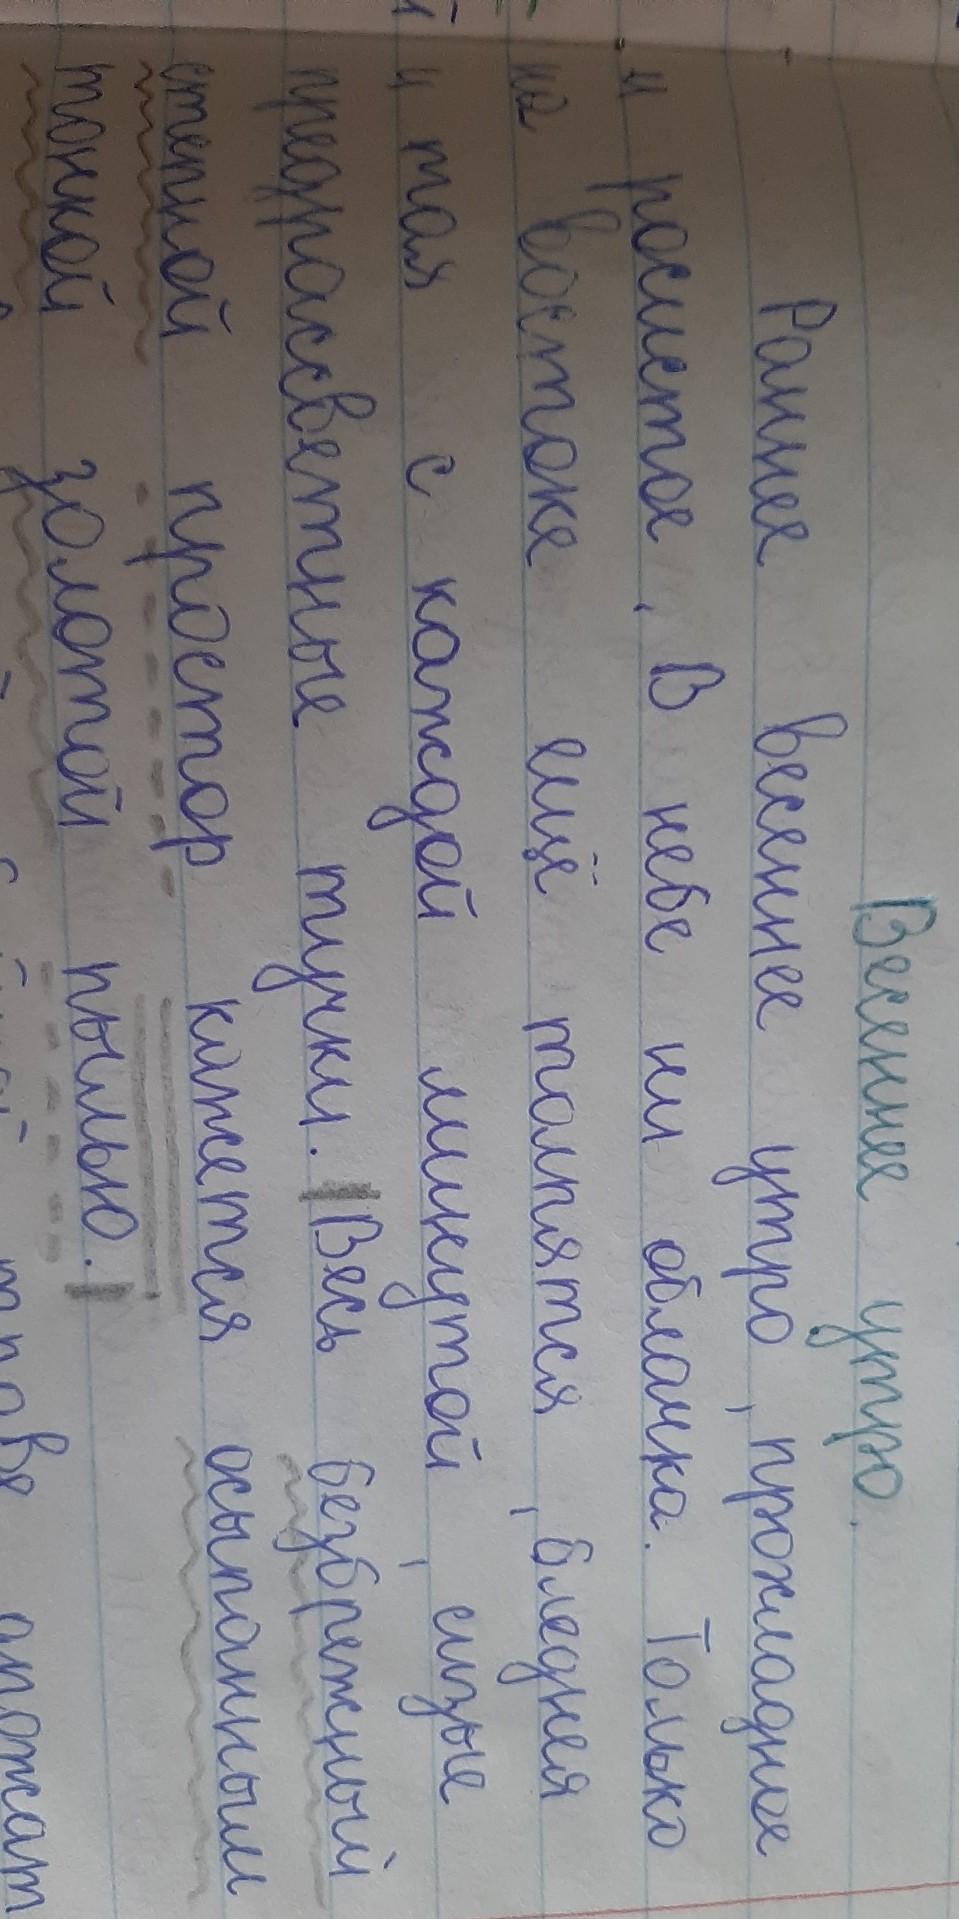 Весеннее утро.
Раннее весеннее утро, прохладное
и росистое. В небе ни облачка. Только
на востоке ещё толпятся, бледнея
и тая с каждой минутой, сизые
предрассветные тучки. Весь безбрежный
степной простор кажется осыпанным
тонкой золотой пылью.